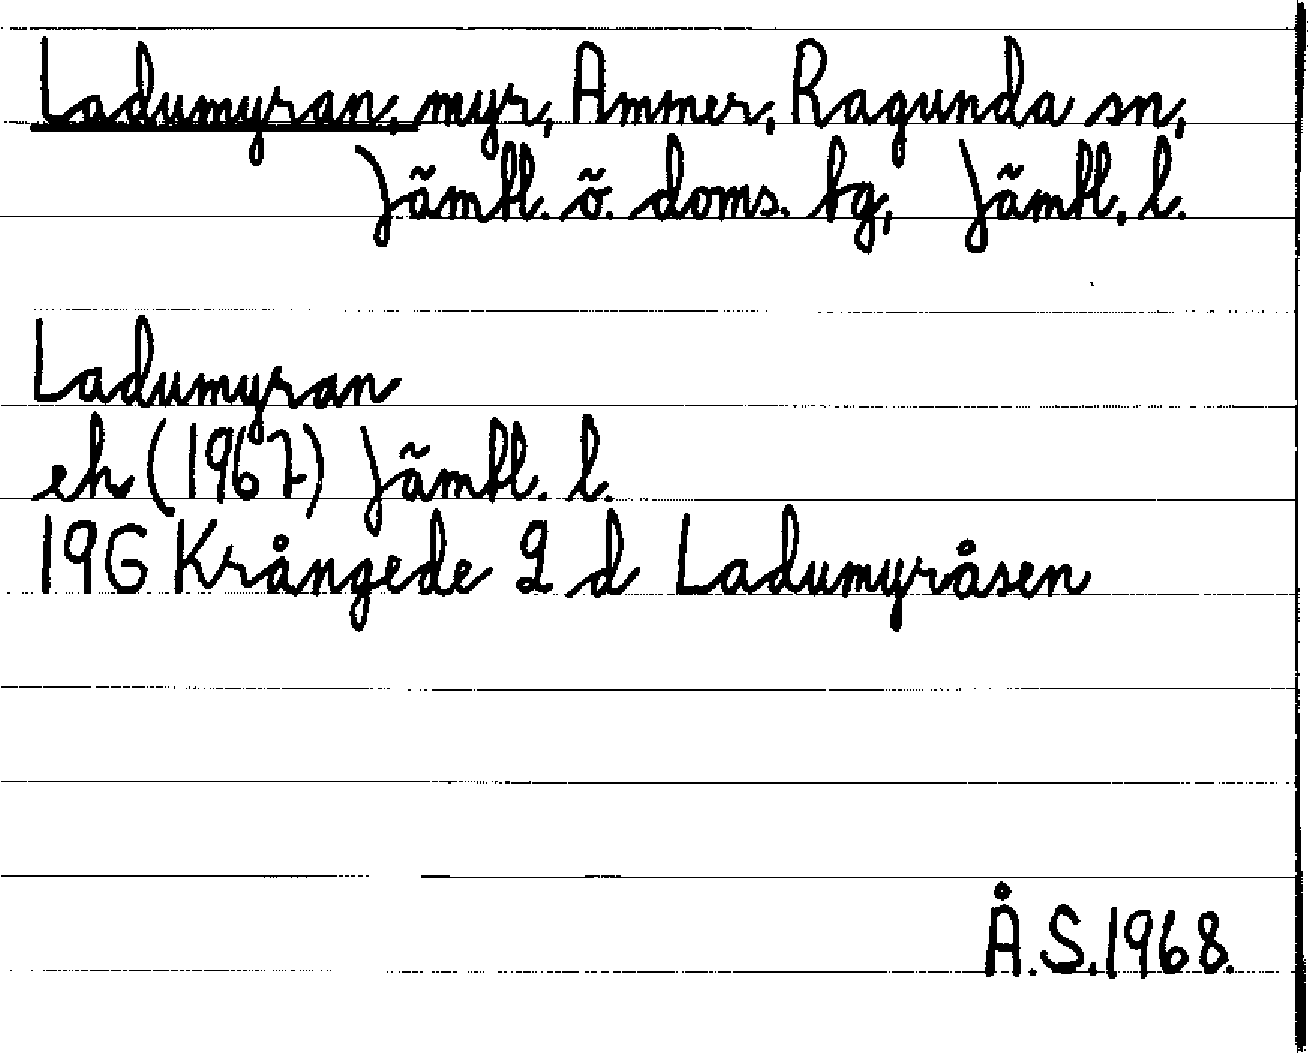 Ladumyran, myr, Ammer, Ragunda sn,
Jämtl. ö. doms. tg, Jämtl. l.
Ladumyran
ek (1967) Jämtl. l.
19G Krångede 2 d Ladumyråsen
Å.S.1968.